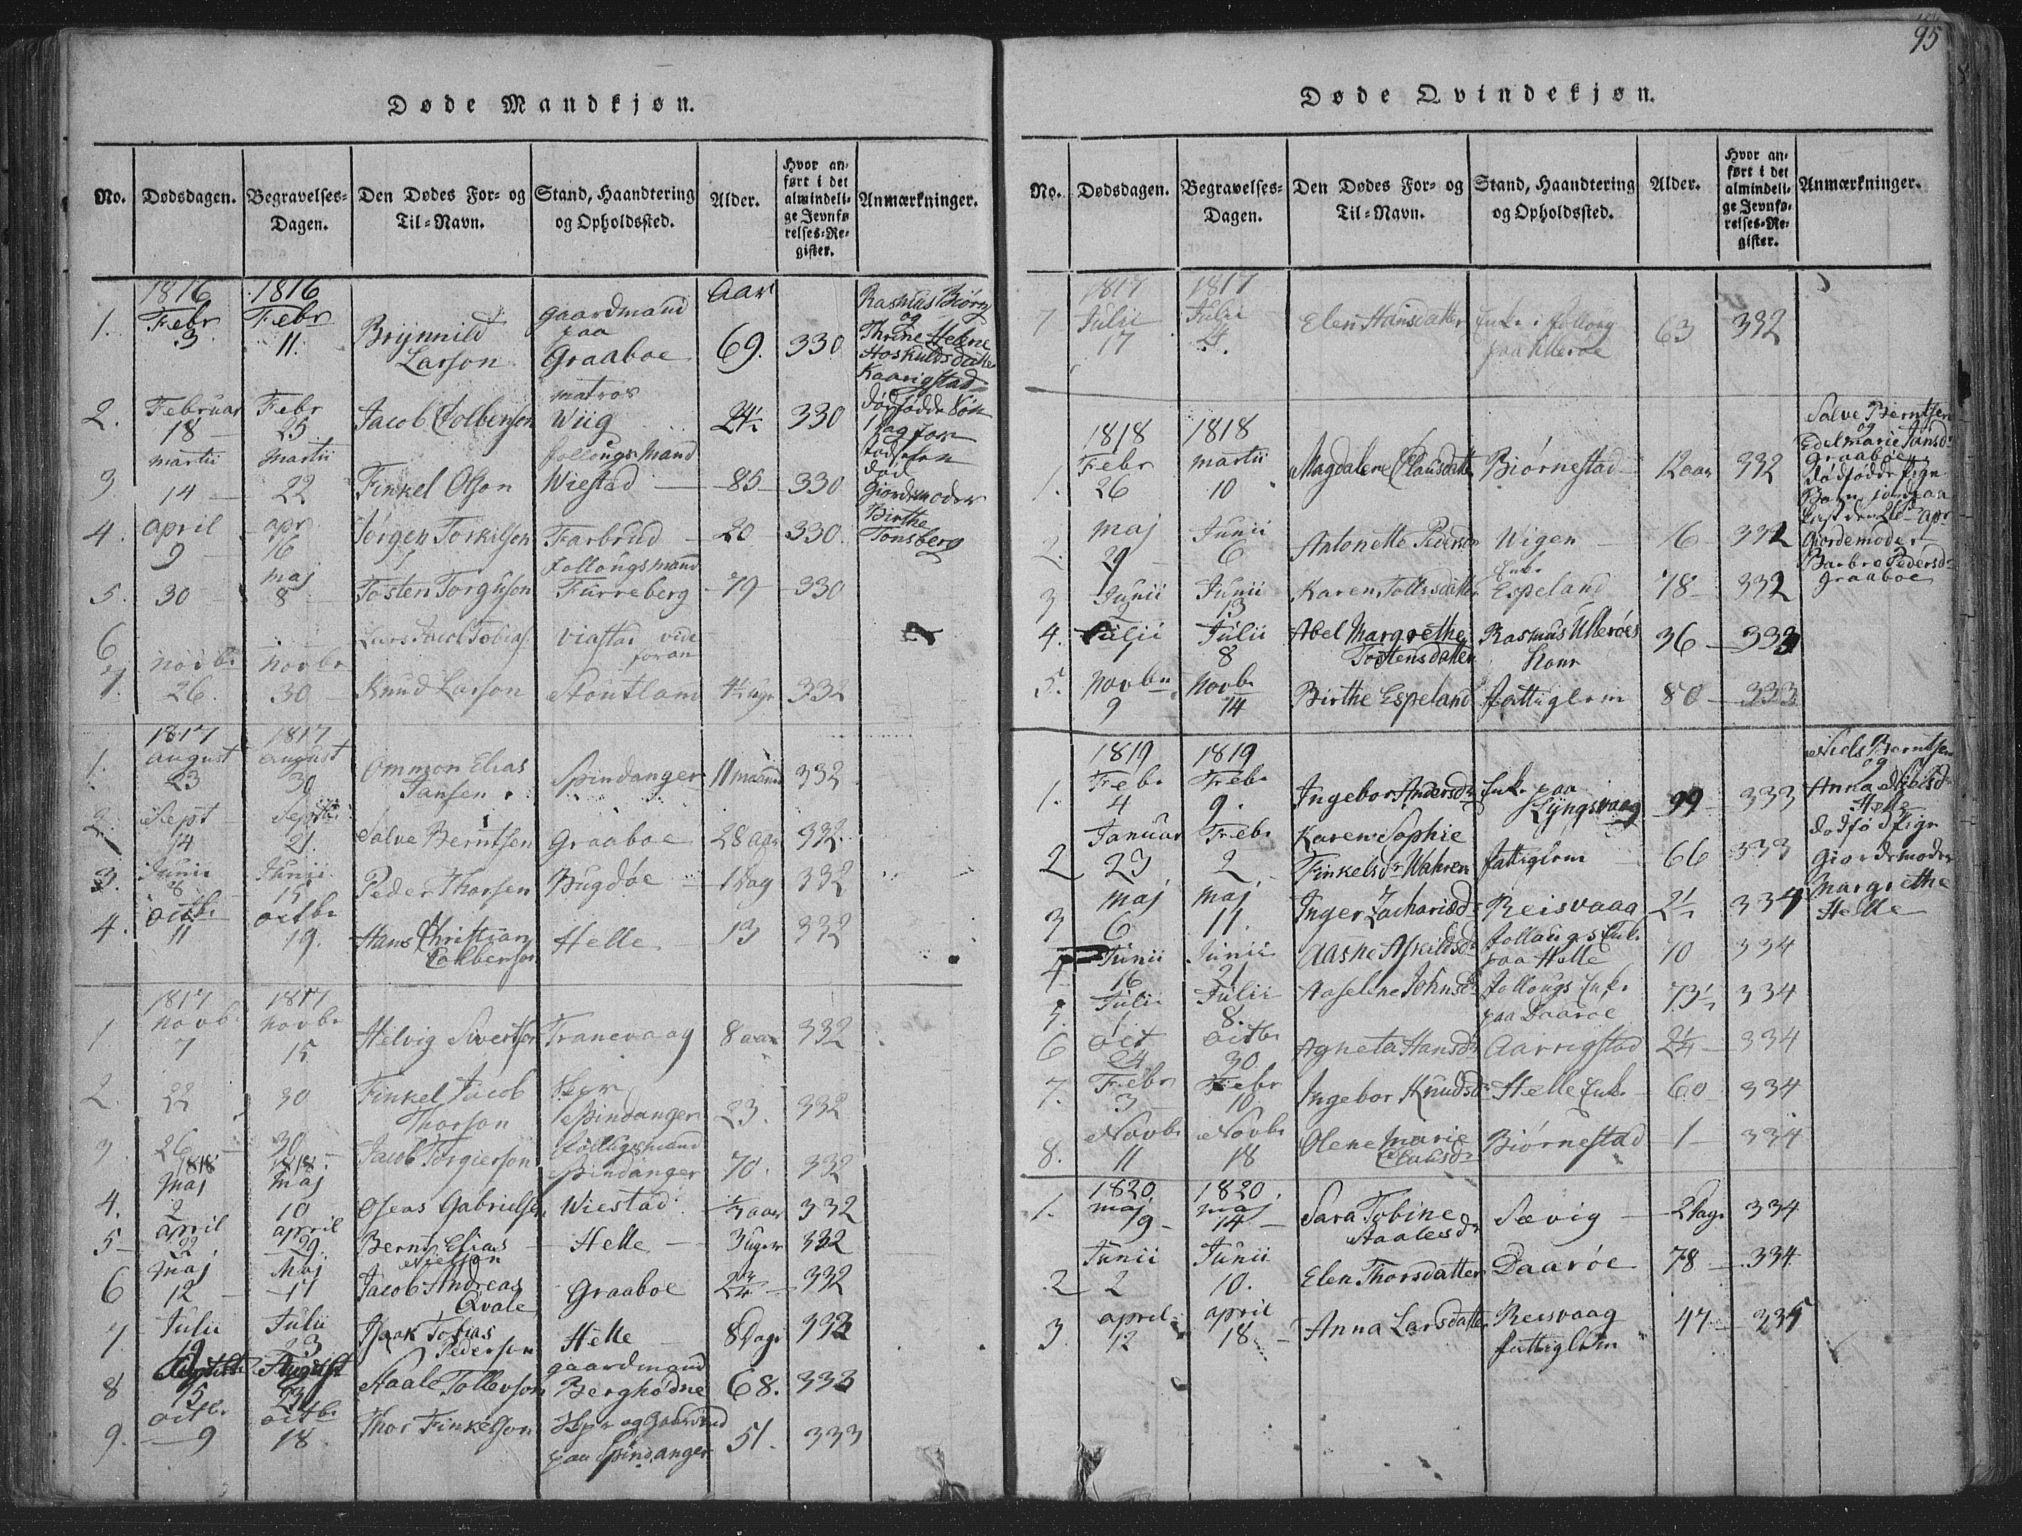 95
Døde Mandkjøn.
No. Dødsdagen. Begravelses-Dagen. Den Dødes For- og Til-Navn. Stand, Haandtering og Opholdssted. Alder. Hvor anført i det almindelige Jevnførelses-Register. Anmærkninger.
1. 1816 Febr 3. 1816 Febr 11. Brynnild Larson gaardmand paa Graaboe Aar 69. 330
Rasmus Biørn og Thrine Helene Hoskuldsdatter Kaarigstad dødfødde Søn
Giordemoder Birthe Tonsberg
2. Februar 18 Febr 25 Jacob Colbenson matros Wiig 24½ 330
3 martii 14 martii 22 Finkel Olson follougsmand Wiestad 85 330
4. april 9 apr 16 Jørgen Torkilson Farbrud 20 330.
5. 30 maj 8 Tosten Torgisson follougsmand Furreberg 79 330
6 Lars Jacob Tobias. Viastad vide foran
7. novbr 26. novbr 30 Knud Larson Stoutland 4½ uger 332
1. 1817 august 23 1817 august 30 Ommon Elias Jansen. Spindanger 11 maaned 332
2. Sept 14 Septbr 21. Salve Berntsen Graaboe 28 aar 332.
3. Junii 8 Junii 15 Peder Thorsen Bugdøe 1 dag 332
4. octbr 11 octbr 19. Hans Christian Colbenson Helle 13 332
1 1817 novbr 7 1817 novbr 15 Helvig Sivertson Tranevaag 8 aar 332
2. 22 30 Finkel Jacob Thorson Skpr Spindanger 23. 332
3. 26 30 Jacob Torgierson follugsmand Spindanger 70. 332
4. 1818 Maj 2 1818. Maj 10 Oseas Gabrielsen Wiestad ½ aar 332
5 april 22 april 29 Bernt Elias Nielson Helle 3 uger 332
6 Maj 12 Maj 17 Jacob Andreas Qvale Graaboe 2¾ 332
7 Julii 19 Julii 23 Isaak Tobias Pederson Helle 8 Dage 333
8 15 August 23 Staale Tollevson gaardmand Berghødne 68. 333
9. octbr 9 octbr 18 Thor Finkelson Skpr og Gaardmand paa Spindanger 51. 333
Døde Qvindekjøn.
No. Dødsdagen. Begravelses-Dagen. Den Dødes For- og Til-Navn. Stand, Haandtering og Opholdssted. Alder. Hvor anført i det almindelige Jevnførelses-Register. Anmærkninger.
7 1817 Julii 17 1817 Julii Elen Hansdatter Enke i folloug paa Ullerøe 63 332
1. 1818 Febr 26 1818 martii 10 Magdalene Clausdatter Biørnestad 12 aar 332
Salve Berntsen og Edelmarie Jansdr Graaboe dødfødde Pige Barn
Giordemoder Barbro Pedersdr Graaboe
2. maj 29 Junii 6 Antonette Pedersdr Wigen 16 332
3 Junii 2 Junii 13 Karen Tollisdatter Enke Espeland 78 332
4. Julii 1 Julii 8 Abel Margrethe Tostensdatter Rasmus Ullerøes Kone 36 333
5. Novbr 9 Novbr 14 Birthe Espeland fattiglem 80 333
1. 1819 Febr 4 1819 Febr 9. Ingebor Andersdr Enke paa Lyngsvaag 99 333
Niels Berntsen og Anna Nielsdr Helle dødfød Pige Giordemoder Margrethe Helle
2 Januar 23 Febr 2 Karen Sophie Finkelsdr Wahren fattiglem 66 333
3 maj 6 maj 11. Inger Zachariædr Reisvaag 2½ 334
4 Junii 16 Junii 21 Aasne Askildsdr follougs Enke paa Helle 70 334
5. Julii 1 Julii 8. Aaselene Johnsdr follougs Enke paa Daarøe 73½ 334
6 Oct 24 octbr 30 Agneta Hansdr Aarrigstad 2¼ 334
7. Febr 3 Febr 10 Ingebor Knudsdr Helle Enke 60 334
8. Novbr 11 Novbr 18 Olene Marie Clausdr Biørnestad 1 334
1. 1820 maj 9 1820. maj 14 Sara Tobine Staalesdr Sævig 2 Dage 334
2 Junii 2 Junii 10. Elen Thorsdatter Daarøe 78 334
3. april 12 april 18 Anna Larsdatter Reisvaag fattiglem 47 335